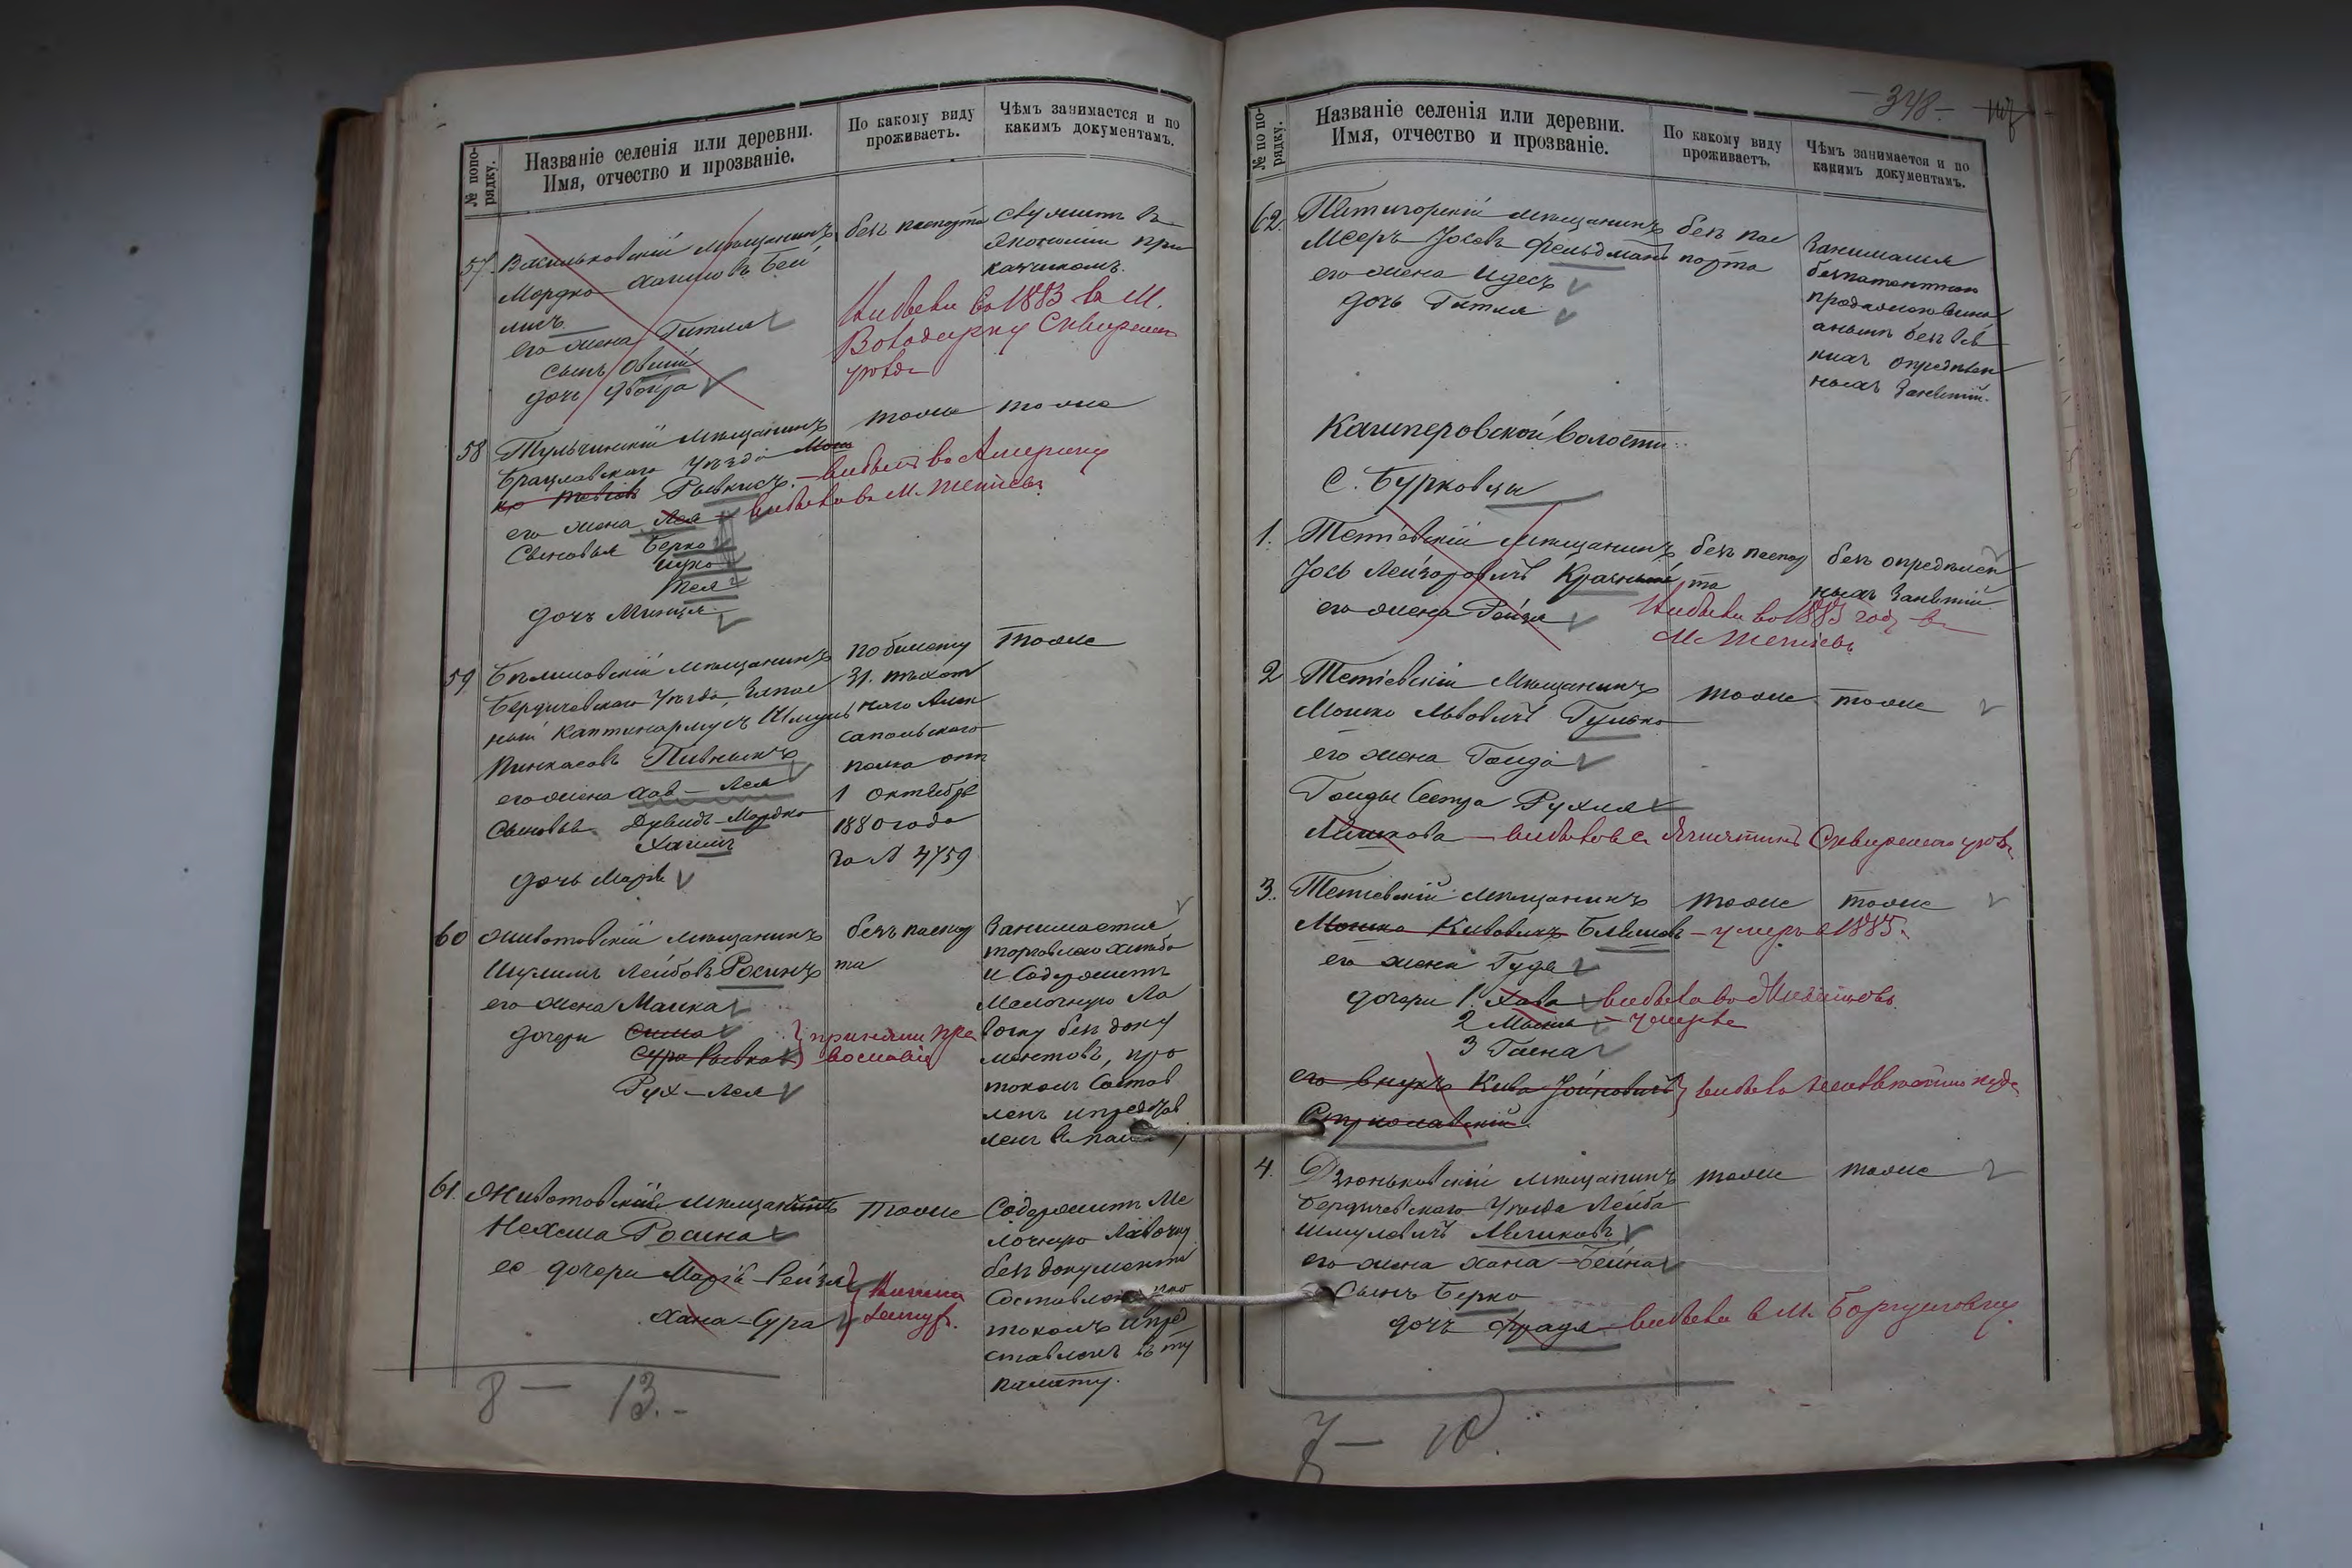 № попо-
рядку.
Названіе селенія или деревни.
Имя, отчество и прозваніе.
По какому виду
проживаетъ.
Чѣмъ занимается и по
какимъ документамъ.
57. Васильковскій мѣщанинъ
Мордко Хаимовъ Бей
лисъ
его жена Гитля
сынъ Овшій
дочь Двойра
безъ паспорта
служитъ въ
Экономіи при
кащикомъ.
Выбыли въ 1883 въ М.
Володарку Сквирскаго
уѣзда
58 Тульчинскій мѣщанинъ
Брацлавскаго Уѣзда Мош
ко Рывкисъ. – выбылъ въ Америку
его жена Лея – выбыла въ М. Тетіевъ
Сыновья Берко
Ицко
дочь Минця
тоже
тоже
59. Бѣлиловскій мѣщанинъ
Бердичевскаго Уѣзда, Запас
ный Каптинармусъ Шмуль
Пинкасовъ Пивникъ
его жена Хая-Лея
Сыновья Дувидъ-Мордко
Хаимъ
дочь Марія
по билету
31. пѣхот
наго Алек
сапольскаго
полка отъ
1 октября
1880 года
за № 4759
тоже
60 Животовскій мѣщанинъ
Шулимъ Лейбовъ Росинъ
его жена Малка
дочери Сима
Сура Рывка
Рух-Лея
приняли пра
вославіе
безъ паспор
та
Занимается
торговлею хлѣба
и Содержитъ
Мелочную Ла
вочку безъ доку
ментовъ, про
токолъ Состав
ленъ и представ
ленъ въ пал
61. Животовская мѣщанка
Нехама Росина
ее дочери Марія-Рейзя
Хана-Сура
тоже
Содержитъ Ме
лочную Лавочку
безъ документа
Составленъ про
токолъ и пред
ставленъ въ ту
палату.
8 — 13.-
-348.-
№ по по-
рядку.
Названіе селенія или деревни.
Имя, отчество и прозваніе.
По какому виду
проживаетъ.
Чѣмъ занимается и по
какимъ документамъ.
62. Пятигорскій мѣщанинъ
Мееръ Іосевъ Фельдманъ
его жена Идесъ
дочь Гитля
безъ пас
порта
Занимался
безпатентною
продажею вина
а нынѣ безъ вся
кихъ опредѣлен
ныхъ занятій.
Кашперовской волости
С. Бурковцы
1. Тетіевскій мѣщанинъ
Іось Лейзоровичъ Красный
его жена Рейзя
безъ паспор
та
безъ опредѣлен
ныхъ занятій.
Выбыли въ 1883 году въ
М. Тетіевъ
2 Тетіевскій Мѣщанинъ
Мошко Львовичъ Гулько
его жена Голда
Голды Сестра Рухля
тоже
тоже
выбыла въ с. Сквирскаго уѣзда
3. Тетіевскій мѣщанинъ
Мошко Кивовичъ – умеръ въ 1885.
его жена Гудя
дочери 1. Хава – выбыла въ
2 – умерла
3 Гисна
его внукъ Кива выбылъ неизвѣстно куда
тоже
тоже
4. Дзюньковскій мѣщанинъ
Бердичевскаго Уѣзда Лейба
Шмулевичъ Меликовъ
его жена Хана-Бейна
Сынъ Берко
дочь Фрадя – выбыла въ М. Борщаговку.
тоже
тоже
7 — 10.